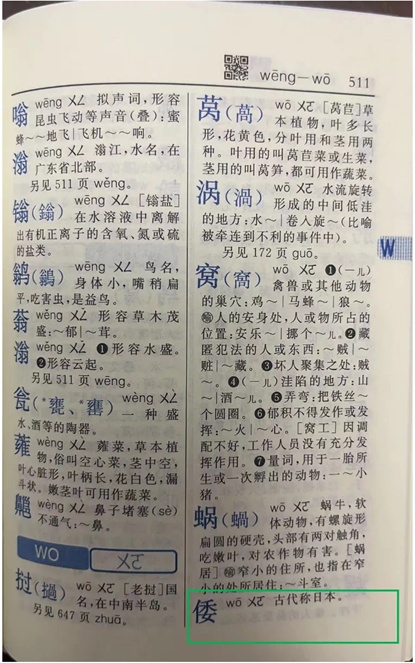 wēng—wō 511
嗡 wēng ㄨㄥ 拟声词,形容
昆虫飞动等声音(叠):蜜
蜂～～地飞|飞机～～响。
滃 wēng ㄨㄥ 滃江,水名,在
广东省北部。
另见511页 wěng。
鎓(鎓) wēng ㄨㄥ [鎓盐]
在水溶液中离解
出有机正离子的含氧、氮或硫
的盐类。
鹟(鶲) wēng ㄨㄥ 鸟名,
身体小,嘴稍扁
平,吃害虫,是益鸟。
蓊 wěng ㄨㄥ 形容草木茂
盛:～郁|～茸。
滃 wěng ㄨㄥ ❶形容水盛。
❷形容云起。
另见511页 wēng。
瓮(*甕、*罋) wèng ㄨㄥ
一种盛
水、酒等的陶器。
蕹 wèng ㄨㄥ 蕹菜,草本植
物,俗叫空心菜,茎中空,
叶心脏形,叶柄长,花白色,漏
斗状。嫩茎叶可用作蔬菜。
齆 wèng ㄨㄥ 鼻子堵塞(sè)
不通气:～鼻。
WO ㄨㄛ
挝(撾) wō ㄨㄛ [老挝]国
名,在中南半岛。
另见647页 zhuā。
莴(萵) wō ㄨㄛ [莴苣]草
本植物,叶多长
形,花黄色,分叶用和茎用两
种。叶用的叫莴苣菜或生菜,
茎用的叫莴笋,都可用作蔬菜。
涡(渦) wō ㄨㄛ 水流旋转
形成的中间低洼
的地方:水～|卷入旋～(比喻
被牵连到不利的事件中)。
另见172页 guō。
窝(窩) wō ㄨㄛ ❶(—儿)
禽兽或其他动物
的巢穴:鸡～|马蜂～|狼～。
人的安身处,人或物所占的
位置:安乐～|挪个～儿。❷藏
匿犯法的人或东西:～贼|～
赃|～藏。❸坏人聚集之处:贼
～。❹(—儿)洼陷的地方:山
～|酒～儿。❺弄弯:把铁丝～
个圆圈。❻郁积不得发作或发
挥:～火|～心。[窝工]因调
配不好,工作人员没有充分发
挥作用。❼量词,用于一胎所
生或一次孵出的动物:一～小
猪。
W
蜗(蝸) wō ㄨㄛ 蜗牛,软
体动物,有螺旋形
扁圆的硬壳,头部有两对触角,
吃嫩叶,对农作物有害。[蜗
居]窄小的住所,也指在窄
小的处所居住:～斗室。
倭 wō ㄨㄛ 古代称日本。